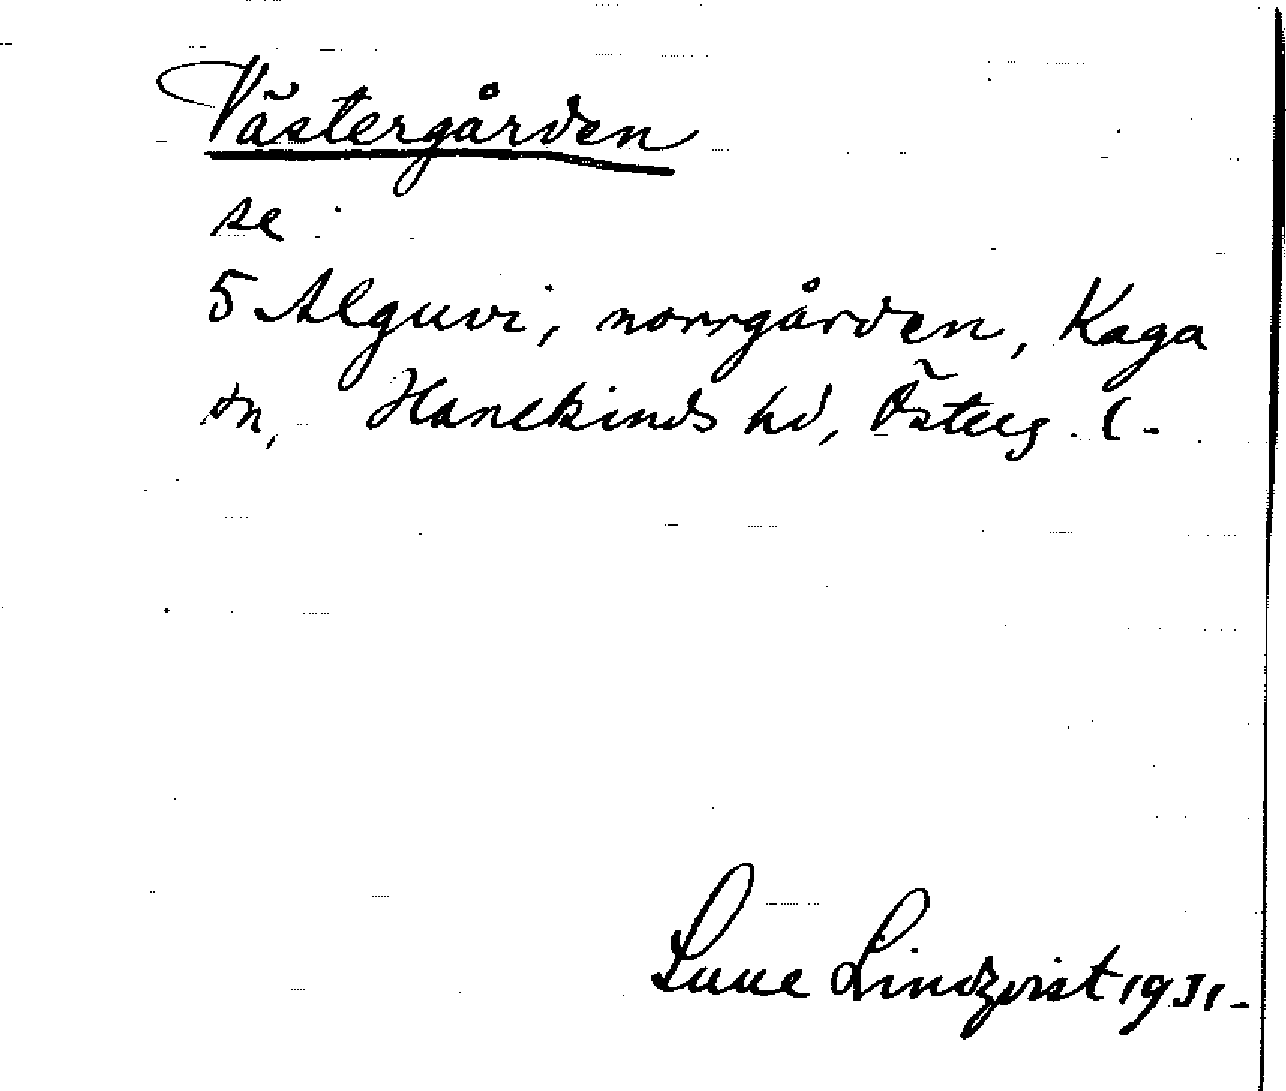 Västergården
se :
5 Alguvi, norrgården, Kaga
sn, Hanekinds hd, Österg. l.
Sune Lindqvist 1931.